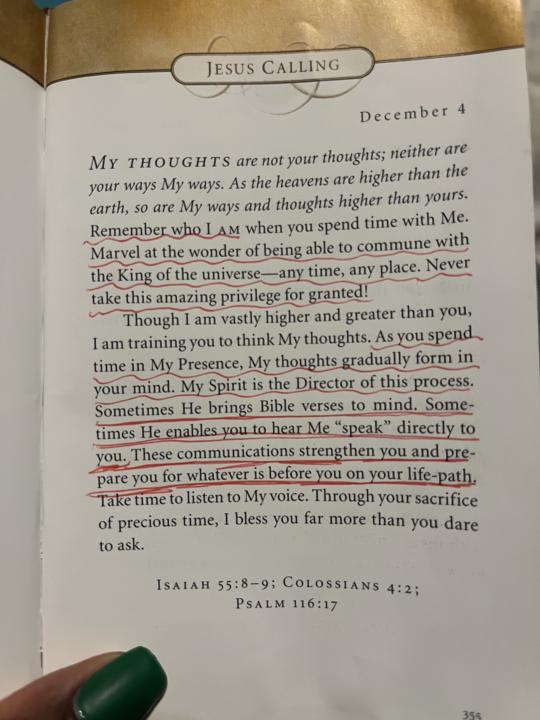 JESUS CALLING
December 4
MY THOUGHTS are not your thoughts; neither are
your ways My ways. As the heavens are higher than the
earth, so are My ways and thoughts higher than yours.
Remember who I AM when you spend time with Me.
Marvel at the wonder of being able to commune with
the King of the universe—any time, any place. Never
take this amazing privilege for granted!
Though I am vastly higher and greater than you,
I am training you to think My thoughts. As you spend
time in My Presence, My thoughts gradually form in
your mind. My Spirit is the Director of this process.
Sometimes He brings Bible verses to mind. Some-
times He enables you to hear Me “speak” directly to
you. These communications strengthen you and pre-
pare you for whatever is before you on your life-path.
Take time to listen to My voice. Through your sacrifice
of precious time, I bless you far more than you dare
to ask.
ISAIAH 55:8–9; COLOSSIANS 4:2;
PSALM 116:17
355